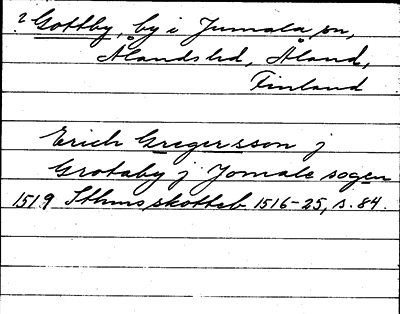 ? Gottby, by i Jumala sn,
Ålands hd, Åland,
Finland
Erich Gregersson j
Grotaby j Jomale sogen
1519 Sthms skotteb 1516-25, s. 84.